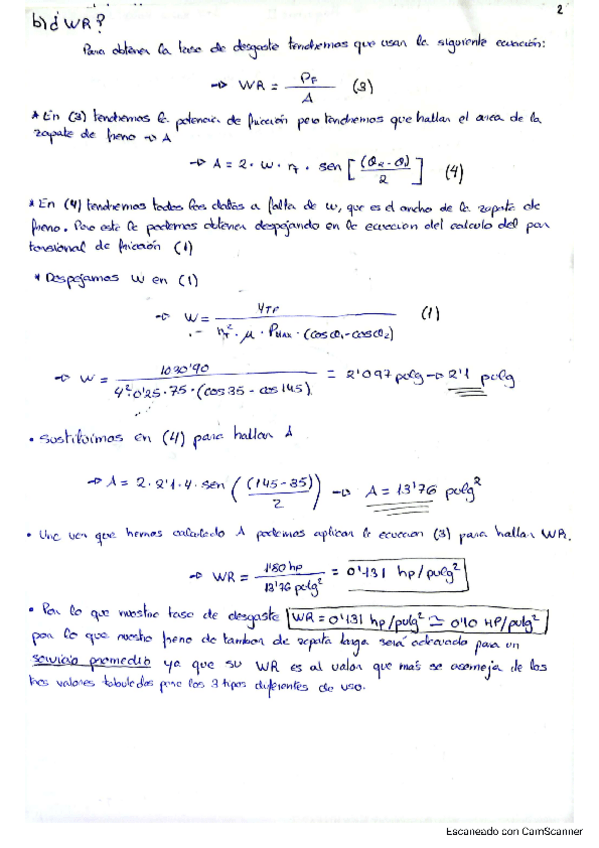 2
b) ¿WR?
Para obtener la tasa de desgaste tendremos que usar la siguiente ecuación:
→ WR = PF / A (3)
* En (3) tendremos la potencia de fricción pero tendremos que hallar el area de la
zapata de freno → A
→ A = 2 · W · r · sen [ (θ2 - θ1) / 2 ] (4)
* En (4) tendremos todos los datos a falta de w, que es el ancho de la zapata de
freno. Pero este lo podemos obtener despejando en la ecuacion del calculo del par
torsional de fricción (1)
* Despejamos W en (1)
→ W = 4TF / r² · μ · PMAX · (cosθ1 - cosθ2) (1)
→ W = 1030'90 / 4² · 0'25 · 75 · (cos 35 - cos 145) = 2'097 pulg → 2'1 pulg
• Sustituimos en (4) para hallar A
→ A = 2 · 2'1 · 4 · sen ( (145 - 35) / 2 ) → A = 13'76 pulg²
• Una vez que hemos calculado A podemos aplicar la ecuacion (3) para hallar WR.
→ WR = 1'80 hp / 13'76 pulg² = 0'131 hp/pulg²
• Por lo que nuestra tasa de desgaste WR = 0'131 hp/pulg² ≅ 0'10 HP/pulg²
por lo que nuestro freno de tambor de zapata larga será adecuado para un
servicio promedio ya que su WR es al valor que mas se asemeja de los
tres valores tabulados para los 3 tipos diferentes de uso.
Escaneado con CamScanner